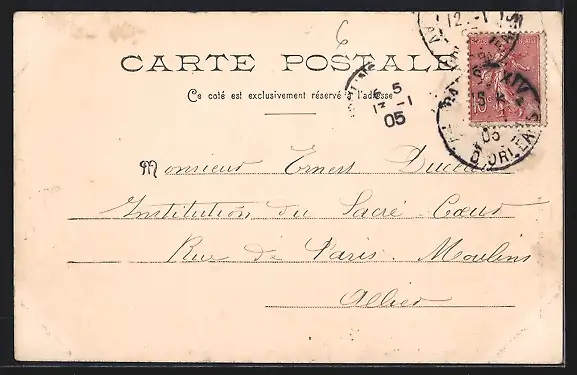 CARTE POSTALE
Ce coté est exclusivement réservé à l'adresse
6 5
13 -1
05
12 -1
XIV
05
D'ORLEANS
10
Monsieur Ernest
Institution du Sacré-Cœur
Rue de Paris. Moulins
Allier